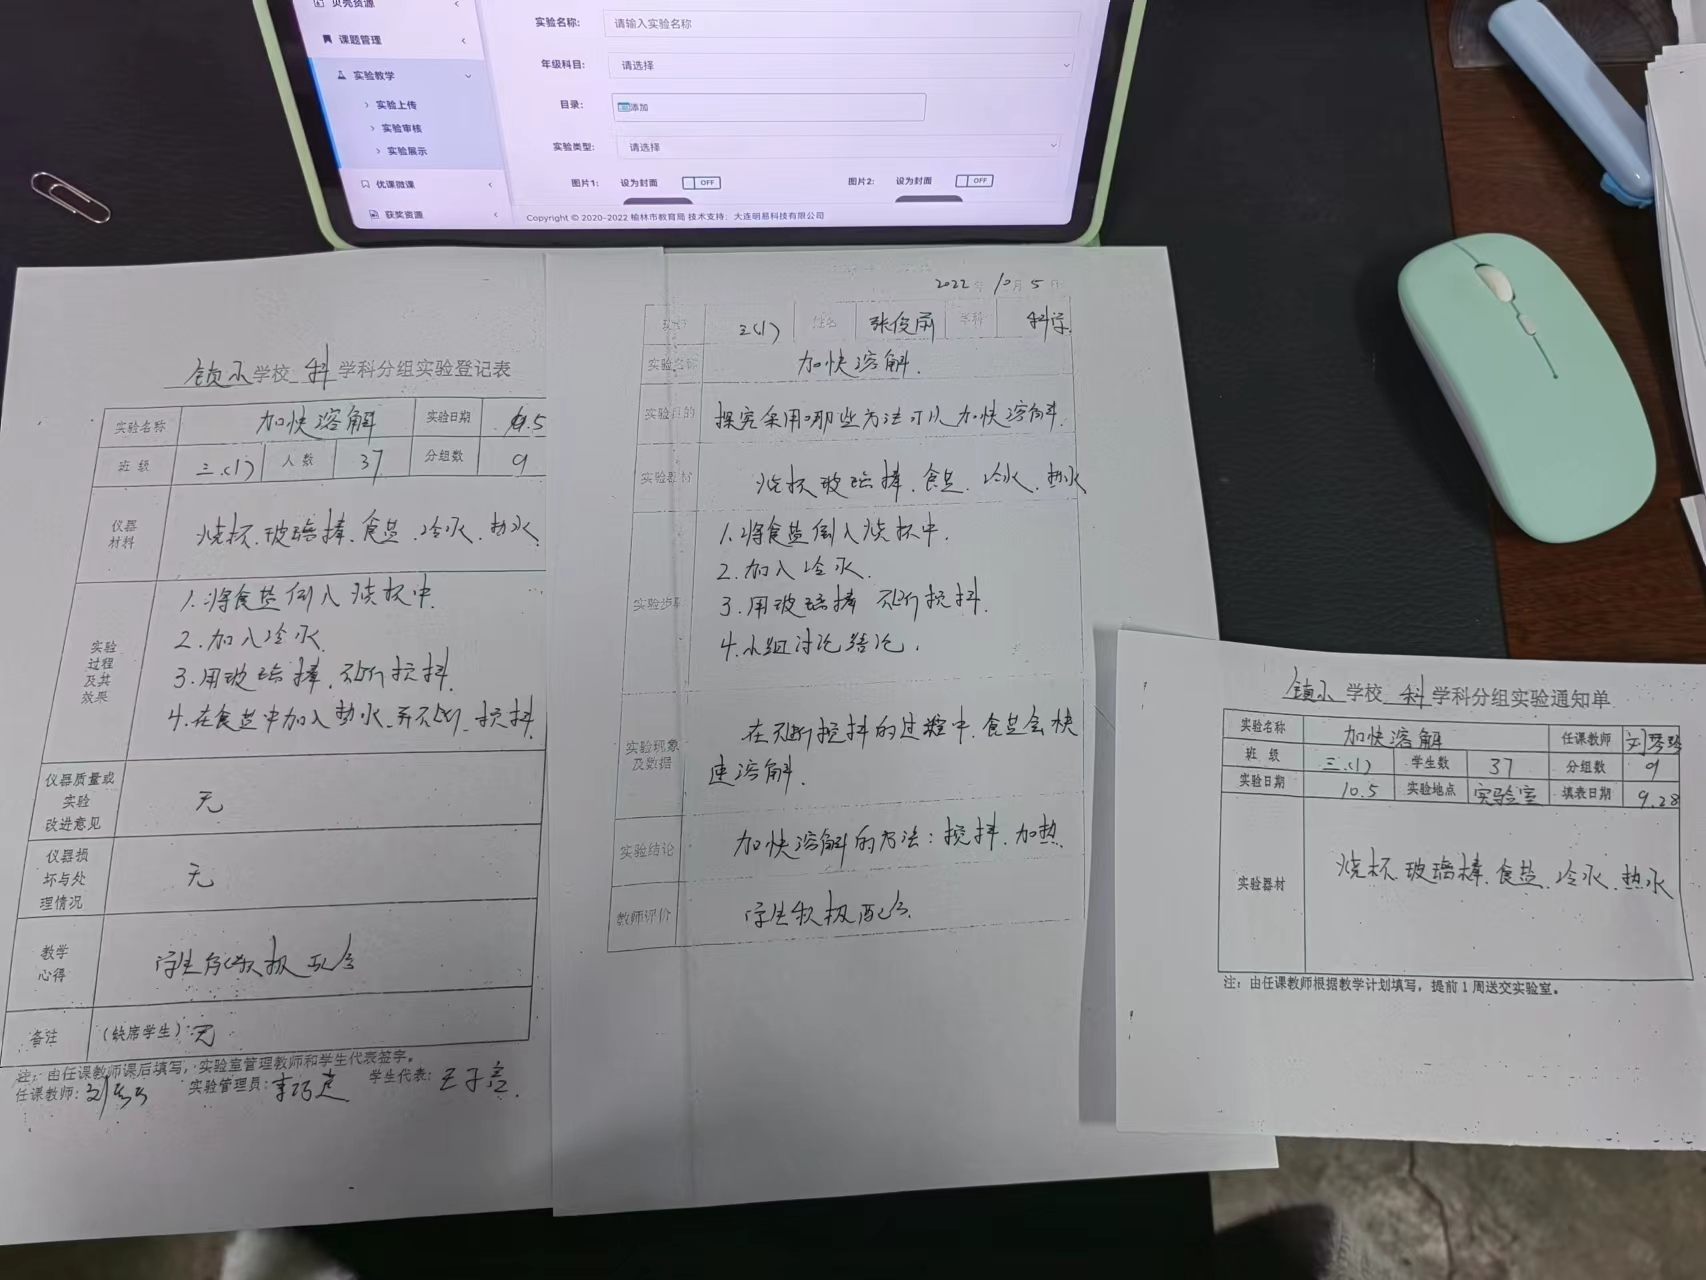 贝壳资源
课题管理
实验教学
实验上传
实验审核
实验展示
优课微课
获奖资源
实验名称: 请输入实验名称
年级科目: 请选择
目录: 添加
实验类型: 请选择
图片1: 设为封面 OFF 图片2: 设为封面 OFF
Copyright © 2020-2022 榆林市教育局 技术支持: 大连明易科技有限公司
镇小学校 科 学科分组实验登记表
实验名称 加快溶解 实验日期 10.5
班 级 三.(1) 人 数 37 分组数 9
仪器
材料 烧杯、玻璃棒、食盐、冷水、热水
实验
过程
及其
效果
1.将食盐倒入烧杯中.
2.加入冷水.
3.用玻璃棒不断搅拌.
4.在食盐中加入热水,并不断搅拌
仪器质量或
实验
改进意见 无
仪器损
坏与处
理情况 无
教学
心得 学生能积极配合
备注 (缺席学生): 无
注:由任课教师课后填写,实验室管理教师和学生代表签字。
任课教师: 实验管理员: 学生代表:
2022年10月5日
三(1) 姓名 学科 科学
实验名称 加快溶解.
实验目的 探究采用哪些方法可以加快溶解.
实验器材 烧杯玻璃棒、食盐、冷水、热水
实验步骤
1.将食盐倒入烧杯中.
2.加入冷水.
3.用玻璃棒不断搅拌.
4.小组讨论结论.
实验现象
及数据
在不断搅拌的过程中,食盐会快
速溶解.
实验结论 加快溶解的方法:搅拌、加热.
教师评价 学生积极配合.
镇小学校 科 学科分组实验通知单
实验名称 加快溶解 任课教师
班 级 三.(1) 学生数 37 分组数 9
实验日期 10.5 实验地点 实验室 填表日期 9.28
实验器材 烧杯、玻璃棒、食盐、冷水、热水
注:由任课教师根据教学计划填写,提前1周送交实验室。